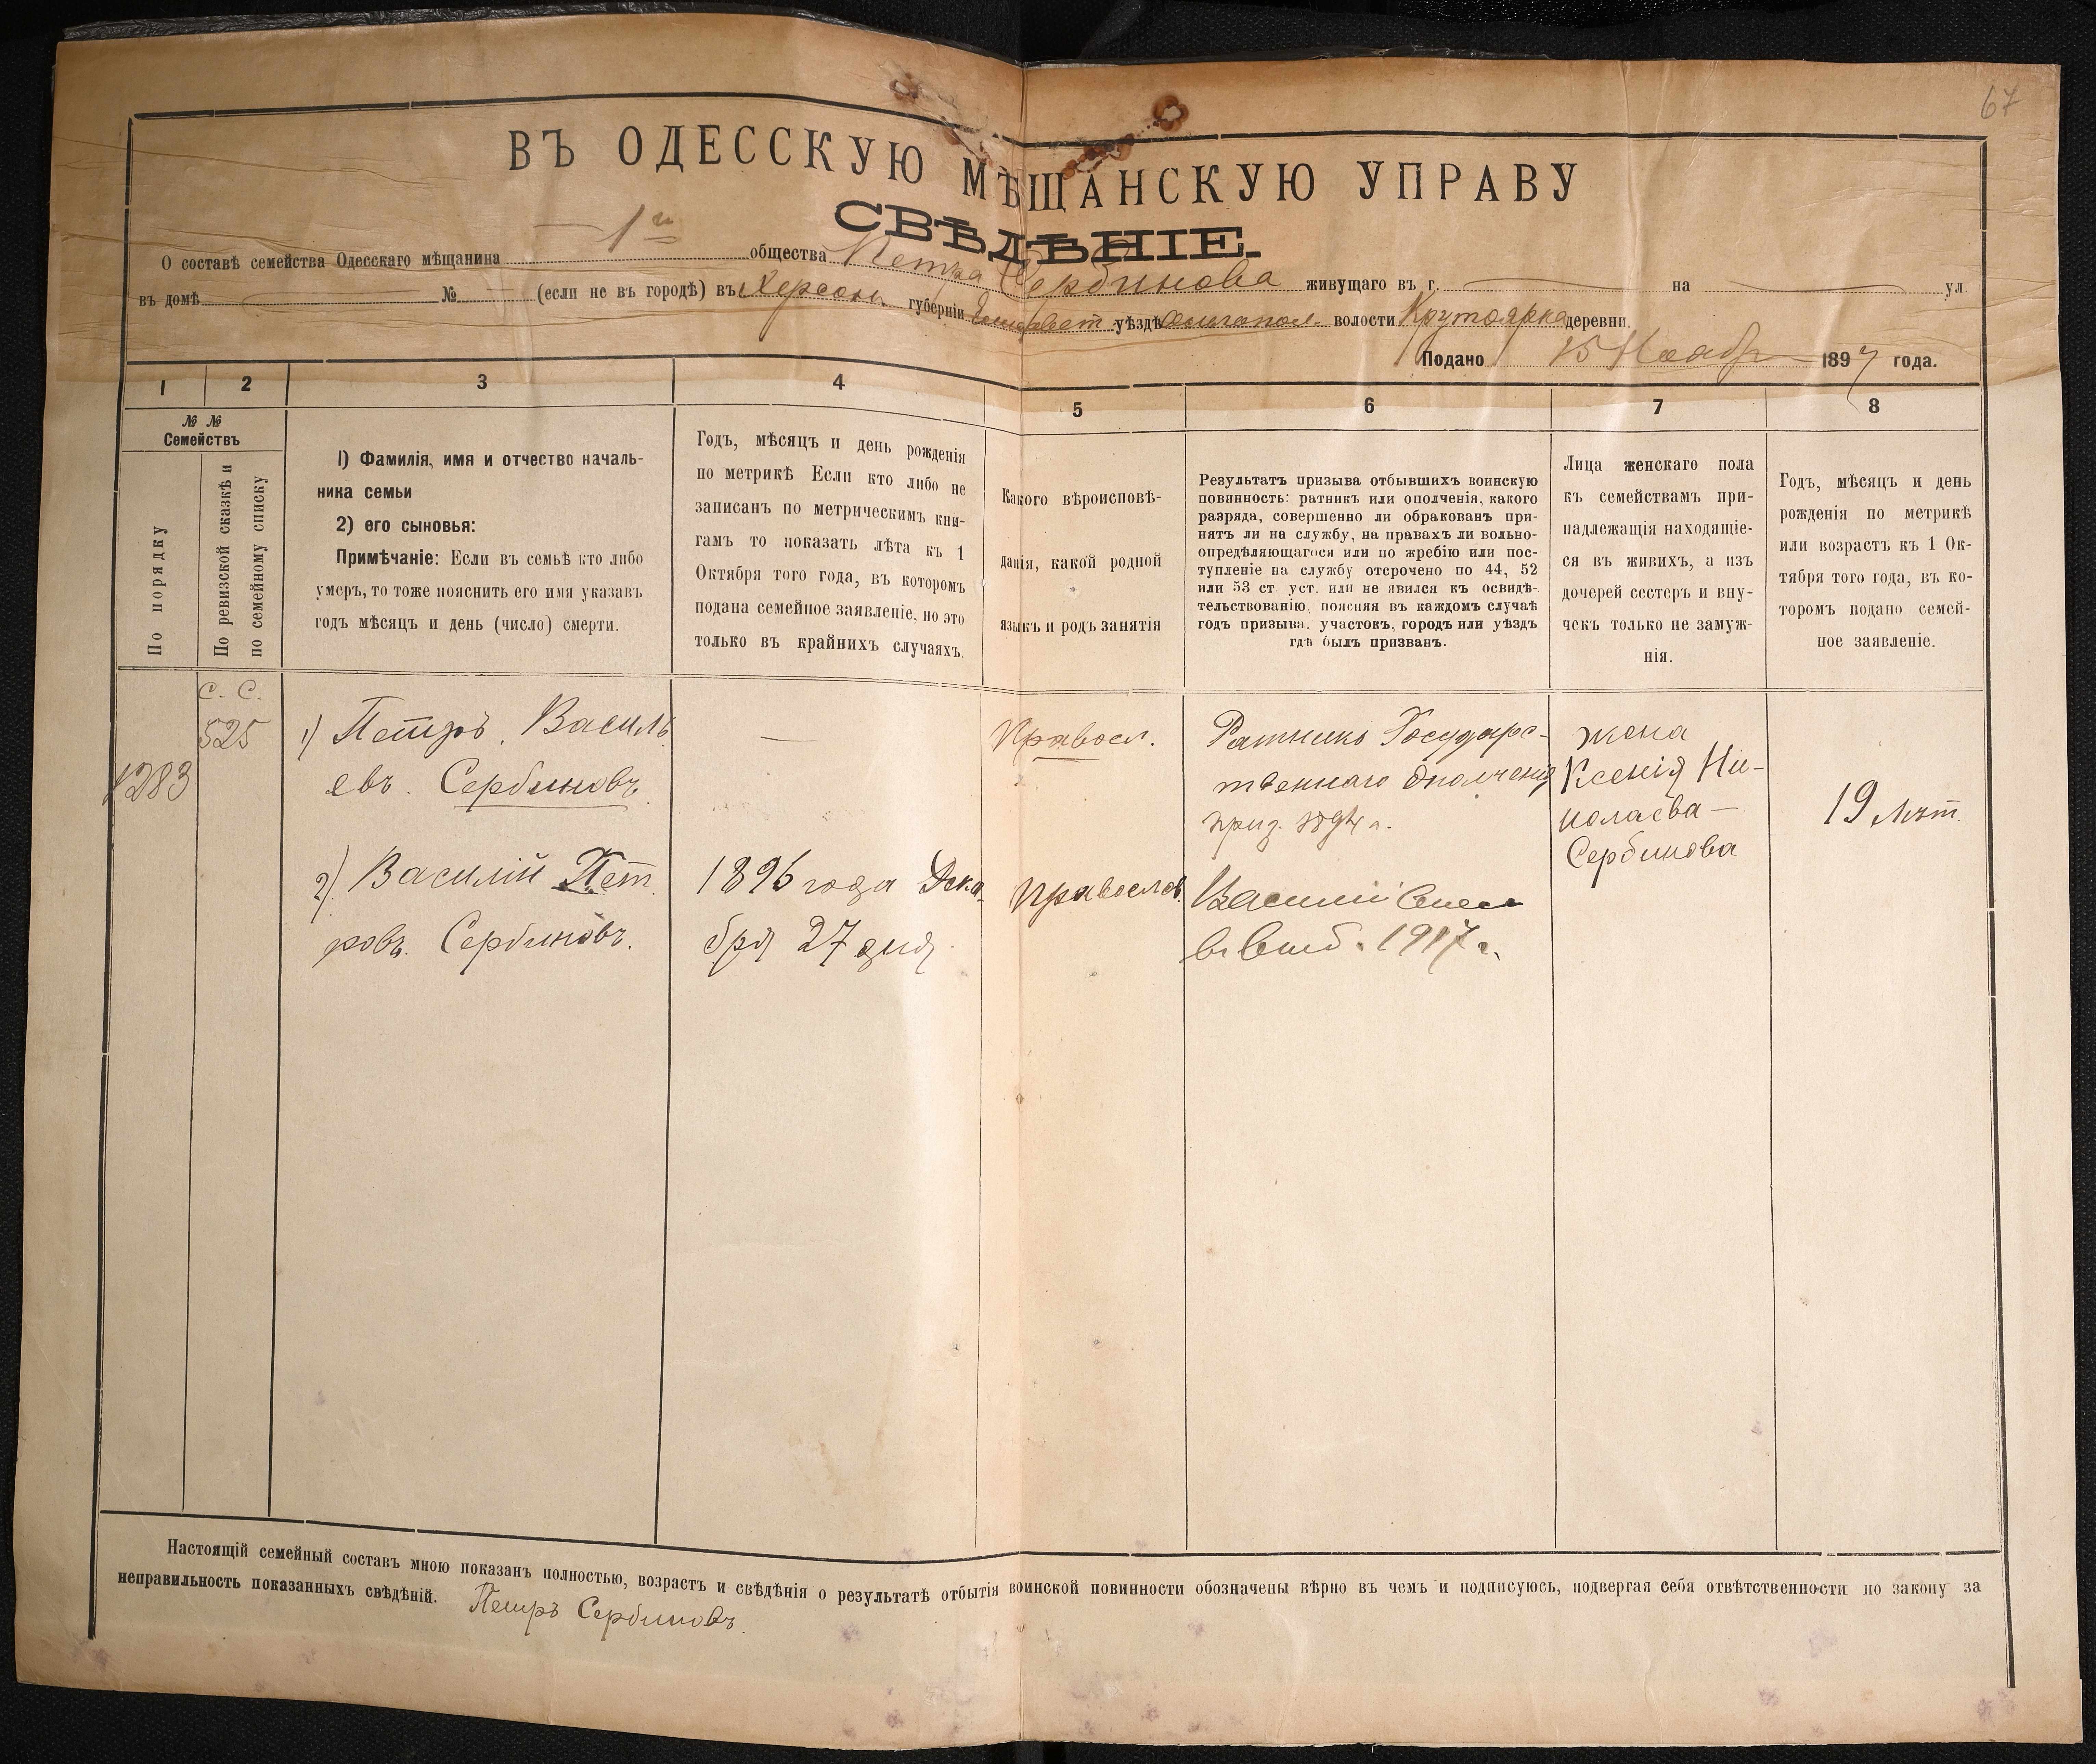 67
ВЪ ОДЕССКУЮ МѢЩАНСКУЮ УПРАВУ
СВѢДѢНІЕ.
О составѣ семейства Одесскаго мѣщанина 1го общества Петра Сербинова живущаго въ г. на ул.
въ домѣ № (если не въ городѣ) въ Херсон. губерніи Елисавет. уѣздѣ волости Крутоярка деревни.
Подано 15 Ноября 1897 года.
1 2 3 4 5 6 7 8
№ № Семействъ
По порядку
По ревизской сказкѣ и
по семейному списку
1) Фамилія, имя и отчество началь-
ника семьи
2) его сыновья:
Примѣчаніе: Если въ семьѣ кто либо
умеръ, то тоже пояснить его имя указавъ
годъ мѣсяцъ и день (число) смерти.
Годъ, мѣсяцъ и день рожденія
по метрикѣ Если кто либо не
записанъ по метрическимъ кни-
гамъ то показать лѣта къ 1
Октября того года, въ которомъ
подана семейное заявленіе, но это
только въ крайнихъ случаяхъ.
Какого вѣроисповѣ-
данія, какой родной
языкъ и родъ занятія
Результатъ призыва отбывшихъ воинскую
повинность: ратникъ или ополченія, какого
разряда, совершенно ли обракованъ при-
нятъ ли на службу, на правахъ ли вольно-
опредѣляющагося или по жребію или пос-
тупленіе на службу отсрочено по 44, 52
или 53 ст. уст. или не явился къ освидѣ-
тельствованію, поясняя въ каждомъ случаѣ
годъ призыва, участокъ, городъ или уѣздъ
гдѣ былъ призванъ.
Лица женскаго пола
къ семействамъ при-
надлежащія находящіе-
ся въ живихъ, а изъ
дочерей сестеръ и вну-
чекъ только не замуж-
нія.
Годъ, мѣсяцъ и день
рожденія по метрикѣ
или возрастъ къ 1 Ок-
тября того года, въ ко-
торомъ подано семей-
ное заявленіе.
1283
С. С.
525
1) Петръ Василь
евъ Сербиновъ
2) Василій Пет
ровъ. Сербиновъ.
—
1896 года Дека-
бря 27 дня.
Правосл.
Православ.
Ратникъ Государс-
твеннаго Ополченія
приз. 1894 г.
Василій
1917 г.
жена
Ксенія Ни-
колаева —
Сербинова
19 лѣт.
Настоящій семейный составъ мною показанъ полностью, возрастъ и свѣдѣнія о результатѣ отбытія воинской повинности обозначены вѣрно въ чемъ и подписуюсь, подвергая себя отвѣтственности по закону за
неправильность показанныхъ свѣдѣній. Петръ Сербиновъ.